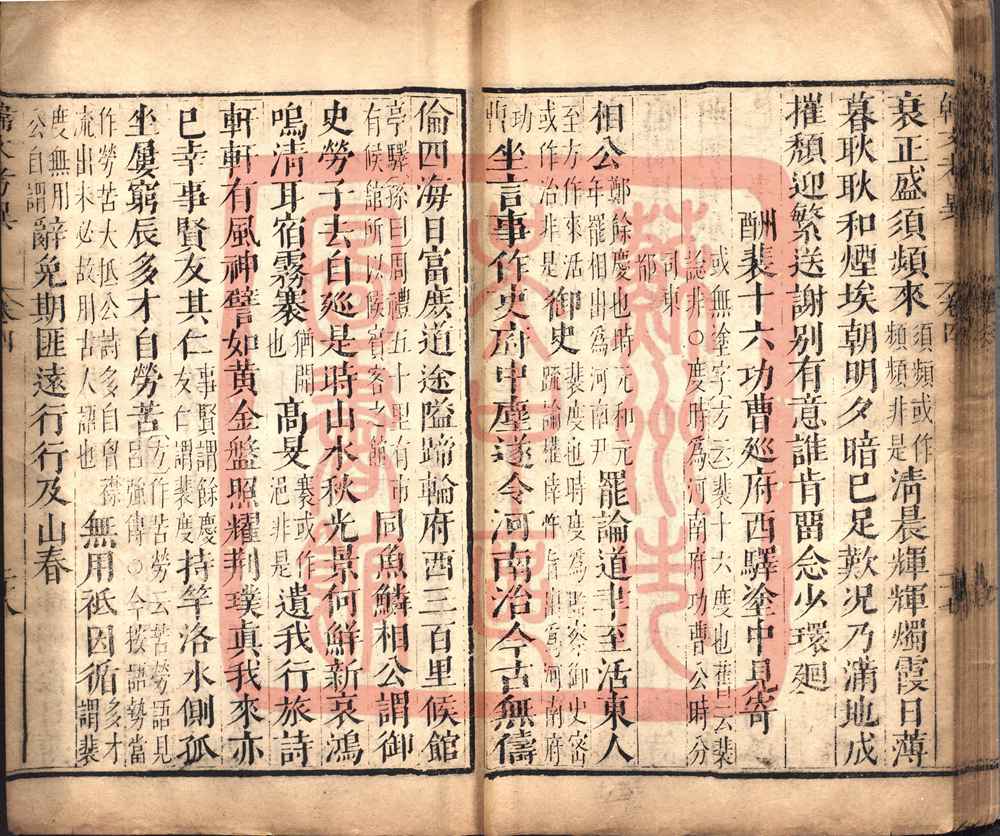 衰正盛須頻來
須頻或作
頻頻非是
清晨輝輝燭霞日薄
暮耿耿和煙埃朝明夕暗已足歎况乃滿地成
摧頹迎繁送謝别有意誰肯畱念少環廻
酬裴十六功曹廵府西驛塗中見寄
或無塗字方云裴十六度也舊云裴
諗非○度時爲河南府功曹公時分
司東
都
相公
鄭餘慶也時元和元
年罷相出爲河南尹
罷論道聿至活東人
至方作來活
或作治非是
御史
裴度也時度爲監察御史密
疏論權倖忤旨出爲河南府
功
曹
坐言事作吏府中塵遂令河南治今古無儔
倫四海日富庶道途隘蹄輪府西三百里候館
亭驛孫曰周禮五十里有市
有候館所以候賓客之館
同魚鱗相公謂御
史勞子去自廵是時山水秋光景何鮮新哀鴻
嗚清耳宿霧褰
猶開
也
高旻
褰或作
非是
遺我行旅詩
軒軒有風神譬如黃金盤照耀荆璞真我來亦
已幸事賢友其仁
事賢謂餘慶
友仁謂裴度
持竿洛水側孤
坐屢窮辰多才自勞苦
方作苦勞云苦勞語見
傳○今按語勢當
作勞苦大抵公詩多自胷襟
流出未必故用古人語也
無用祇因循
多才
謂裴
度無用
公自謂
辭免期匪遠行行及山春
韓文考異
卷四
十八